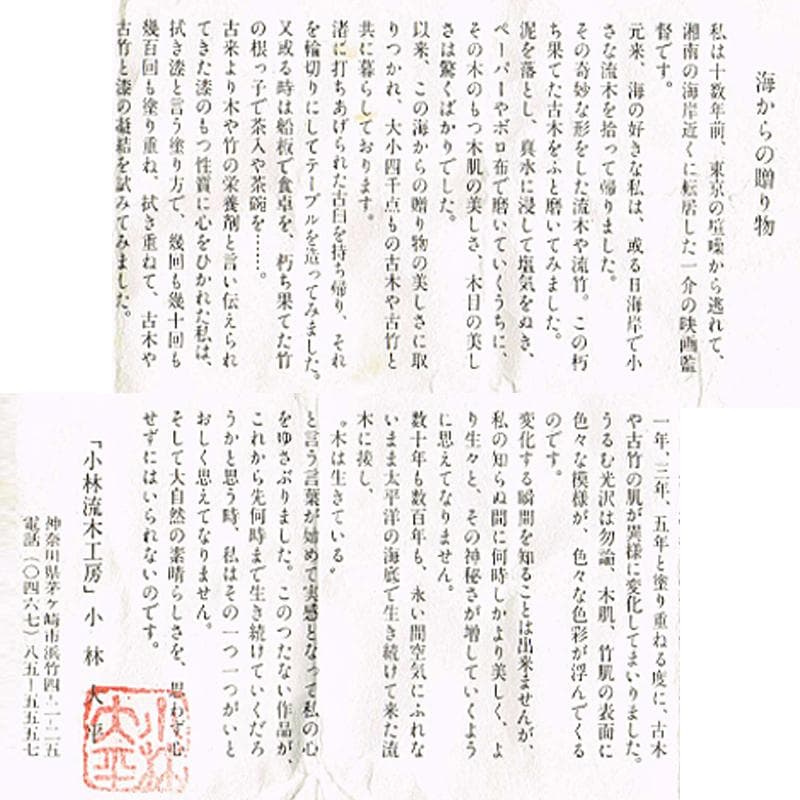 海からの贈り物
私は十数年前、東京の喧噪から逃れて、
湘南の海岸近くに転居した一介の映画監
督です。
元来、海の好きな私は、或る日海岸で小
さな流木を拾って帰りました。
その奇妙な形をした流木や流竹。この朽
ち果てた古木をふと磨いてみました。
泥を落とし、真水に浸して塩気をぬき、
ペーパーやボロ布で磨いていくうちに、
その木のもつ木肌の美しさ、木目の美し
さは驚くばかりでした。
以来、この海からの贈り物の美しさに取
りつかれ、大小四千点もの古木や古竹と
共に暮らしております。
渚に打ちあげられた古臼を持ち帰り、それ
を輪切りにしてテーブルを造ってみました。
又或る時は船板で食卓を、朽ち果てた竹
の根っ子で茶入や茶碗を……。
古来より木や竹の栄養剤と言い伝えられ
てきた漆のもつ性質に心をひかれた私は、
拭き漆と言う塗り方で、幾回も幾十回も
幾百回も塗り重ね、拭き重ねて、古木や
古竹と漆の凝結を試みてみました。
一年、三年、五年と塗り重ねる度に、古木
や古竹の肌が異様に変化してまいりました。
うるむ光沢は勿論、木肌、竹肌の表面に
色々な模様が、色々な色彩が浮んでくる
のです。
変化する瞬間を知ることは出来ませんが、
私の知らぬ間に何時しかより美しく、よ
り生々と、その神秘さが増していくよう
に思えてなりません。
数十年も数百年も、永い間空気にふれな
いまま太平洋の海底で生き続けて来た流
木に接し、
〝木は生きている〟
と言う言葉が始めて実感となって私の心
をゆさぶりました。このつたない作品が、
これから先何時まで生き続けていくだろ
うかと思う時、私はその一つ一つがいと
おしく思えてなりません。
そして大自然の素晴らしさを、思わず心
せずにはいられないのです。
「小林流木工房」小林大平
神奈川県茅ヶ崎市浜竹四-二-二五
電話(〇四六七)八五-五五五七
小林
大平